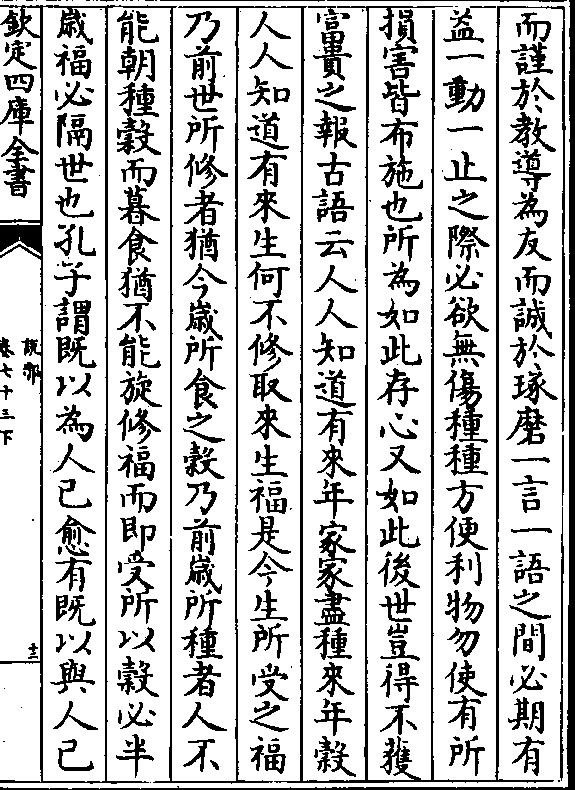 而謹於教導為友而誠於琢磨一言一語之間必期有
益一動一止之際必欲無傷種種方便利物勿使有所
損害皆布施也所為如此存心又如此後世豈得不獲
富貴之報古語云人人知道有來年家家盡種來年穀
人人知道有來生何不修取來生福是今生所受之福
乃前世所修者猶今歳所食之穀乃前歳所種者人不
能朝種穀而暮食猶不能旋修福而即受所以穀必半
歳福必隔世也孔子謂既以為人已愈有既以與人已
欽定四庫全書
說郛
卷七十三下
十三